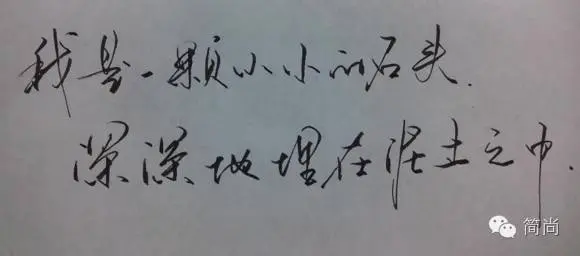 我是一颗小小的石头.
深深地埋在泥土之中.
简尚